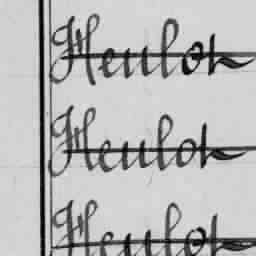 Heulot
Heulot
Heulot